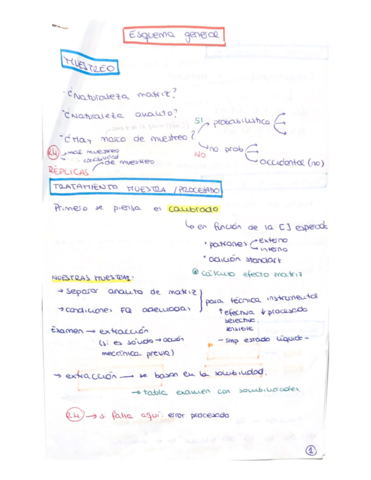 Esquema general
MUESTREO
· ¿Naturaleza matriz?
· ¿Naturaleza analito?
· ¿Hay marco de muestreo?
SI → probabilístico
NO → no prob
accidental (no)
RÉPLICAS
de muestreo
TRATAMIENTO MUESTRA / PROCESADO
Primero se piensa el calibrado
↳ en función de la [ ] esperada
· patrones
externo
interno
· adición standart
cálculo efecto matriz
NUESTRAS MUESTRAS:
→ separar analito de matriz
→ condiciones FQ adecuadas
para técnica instrumental
↑ efectiva ↓ procesado
selectiva
sensible
Examen → extracción
(si es sólido → acción
mecánica previa)
- siempre estado líquido -
→ extracción → se basan en la solubilidad.
→ tabla examen con solubilidades
→ si falla aquí: error procesado
1